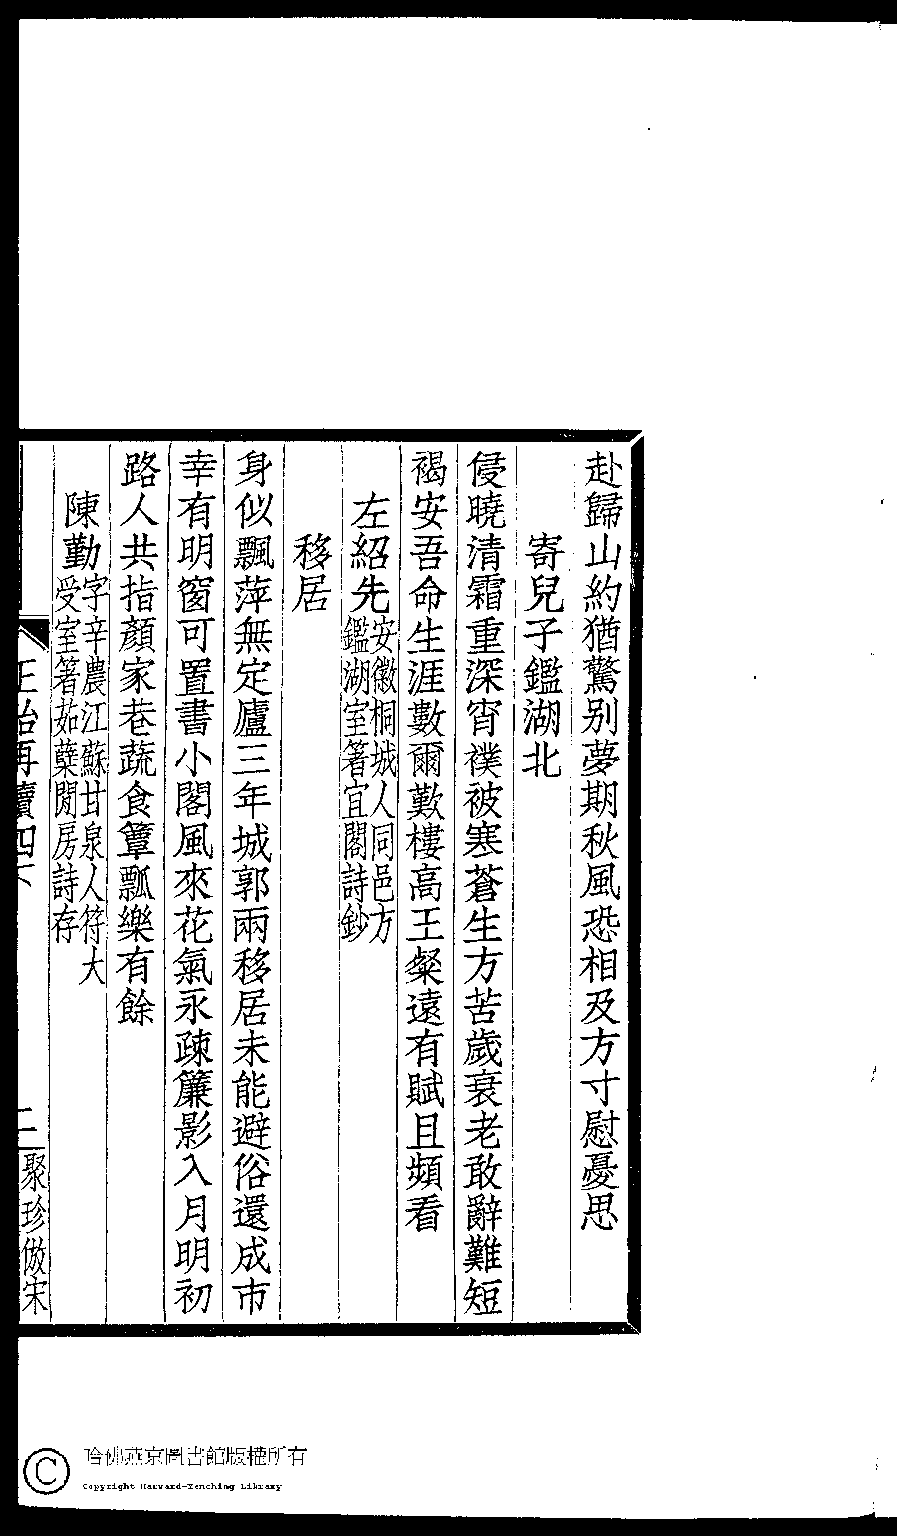 赴歸山約猶驚别夢期秋風恐相及方寸慰憂思
寄兒子鑑湖北
侵曉清霜重深宵襆被寒蒼生方苦歲衰老敢辭難短
褐安吾命生涯數爾歎樓高王粲遠有賦且頻看
左紹先安徽桐城人同邑方
鑑湖室箸宜閣詩鈔
移居
身似飄萍無定廬三年城郭兩移居未能避俗還成市
幸有明窗可置書小閣風來花氣永疎簾影入月明初
路人共指顏家巷蔬食簞瓢樂有餘
陳勤字辛農江蘇甘泉人符大
受室箸茹蘗閒房詩存
正始再續四下
二
聚珍倣宋
哈佛燕京圖書館版權所有
Copyright Harvard-Yenching Library